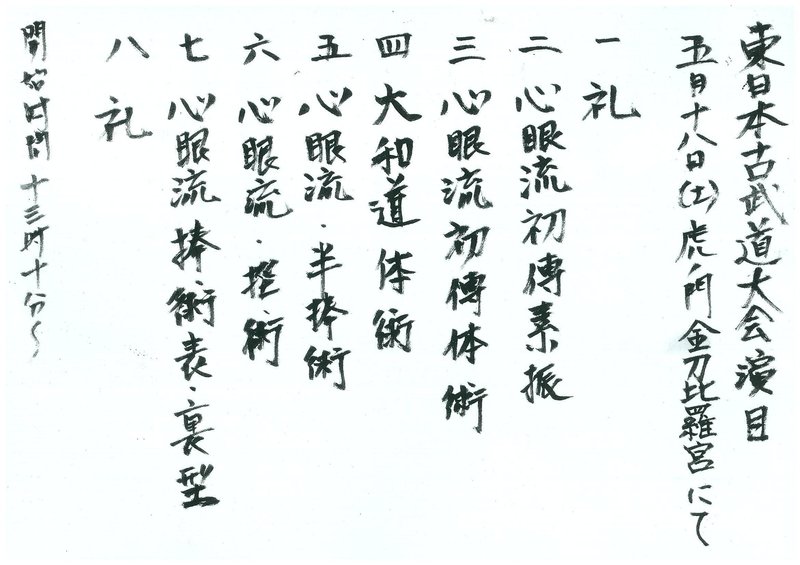 東日本古武道大会演目
五月十八日(土)虎ノ門金刀比羅宮にて
一 礼
二 心眼流初傳素振
三 心眼流初傳体術
四 大和道体術
五 心眼流・半捧術
六 心眼流・捏術
七 心眼流捧術表・裏型
八 礼
開始时間十三时十分〜